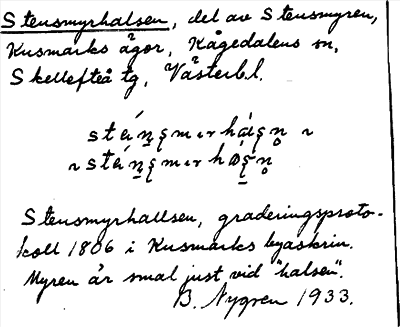 Stensmyrhalsen, del av Stensmyren,
Kusmarks ägor, Kågedalens sn,
Skellefteå tg, Västerb.l.
Stensmyrhallsen, graderingsproto-
koll 1806 i Kusmarks byaskrin.
Myren är smal just vid "halsen".
B. Nygren 1933.